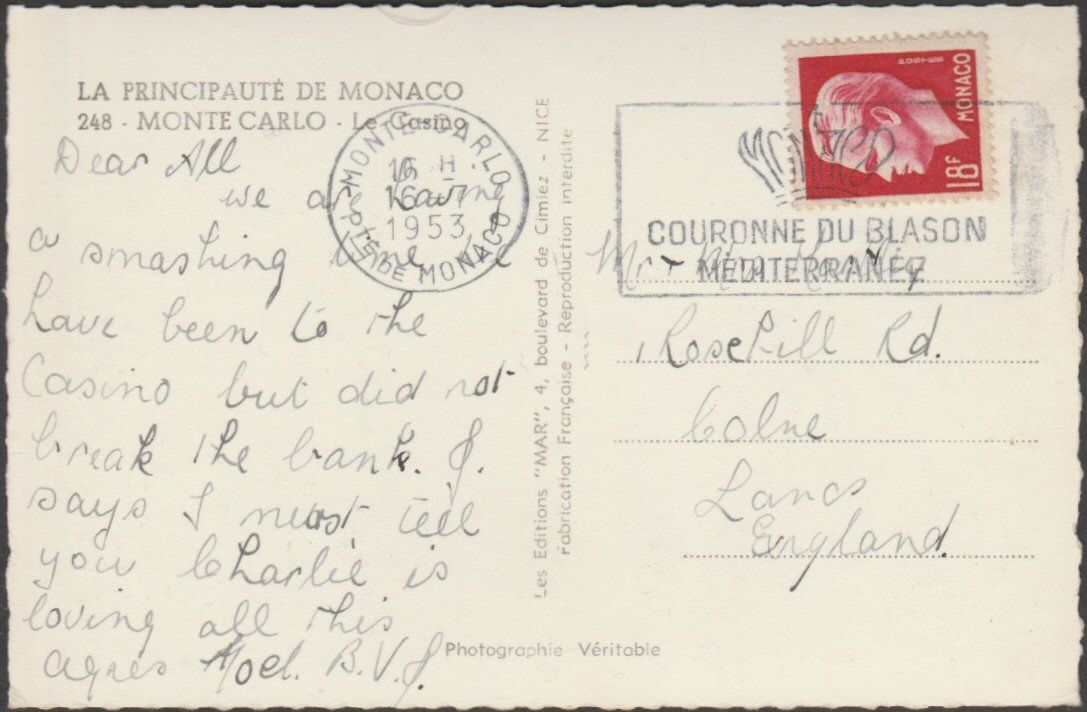 LA PRINCIPAUTÉ DE MONACO
248 - MONTE CARLO - Le Casino
Dear All
we are having
a smashing time
have been to the
Casino but did not
break the bank. J.
says I must tell
you Charlie is
loving all this
Agnes Noel. B.V.J.
MONTE-CARLO
16 H
16
1953
PTÉ DE MONACO
Les Editions "MAR", 4, boulevard de Cimiez - NICE
Fabrication Française - Reproduction interdite
Photographie Véritable
MONACO
18F
MONACO
COURONNE DU BLASON
MÉDITERRANÉE
Mr
Rosehill Rd.
Colne
Lancs
England.